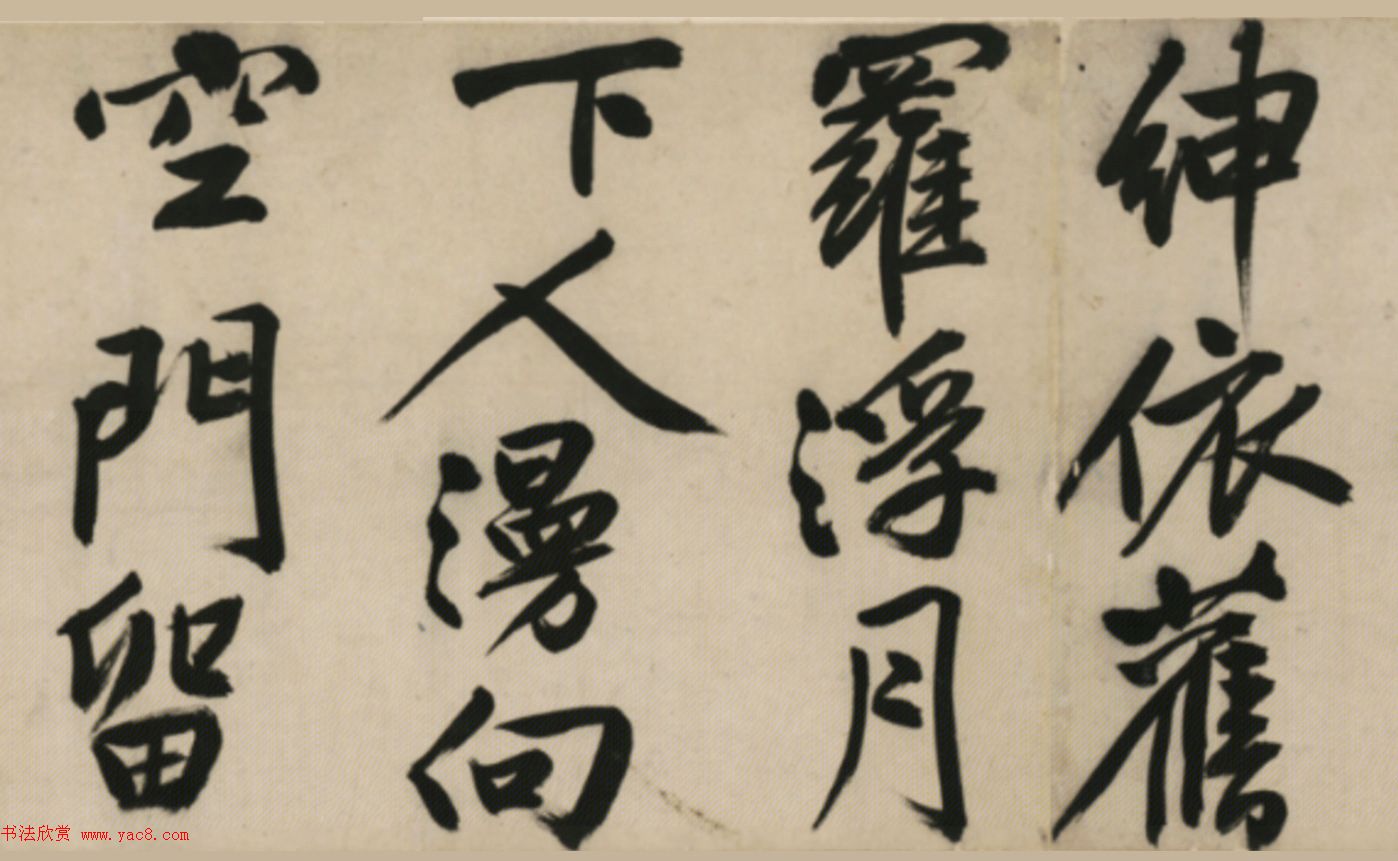 紳依舊
羅浮月
下人漫向
空門留
书法欣赏 www.yac8.com